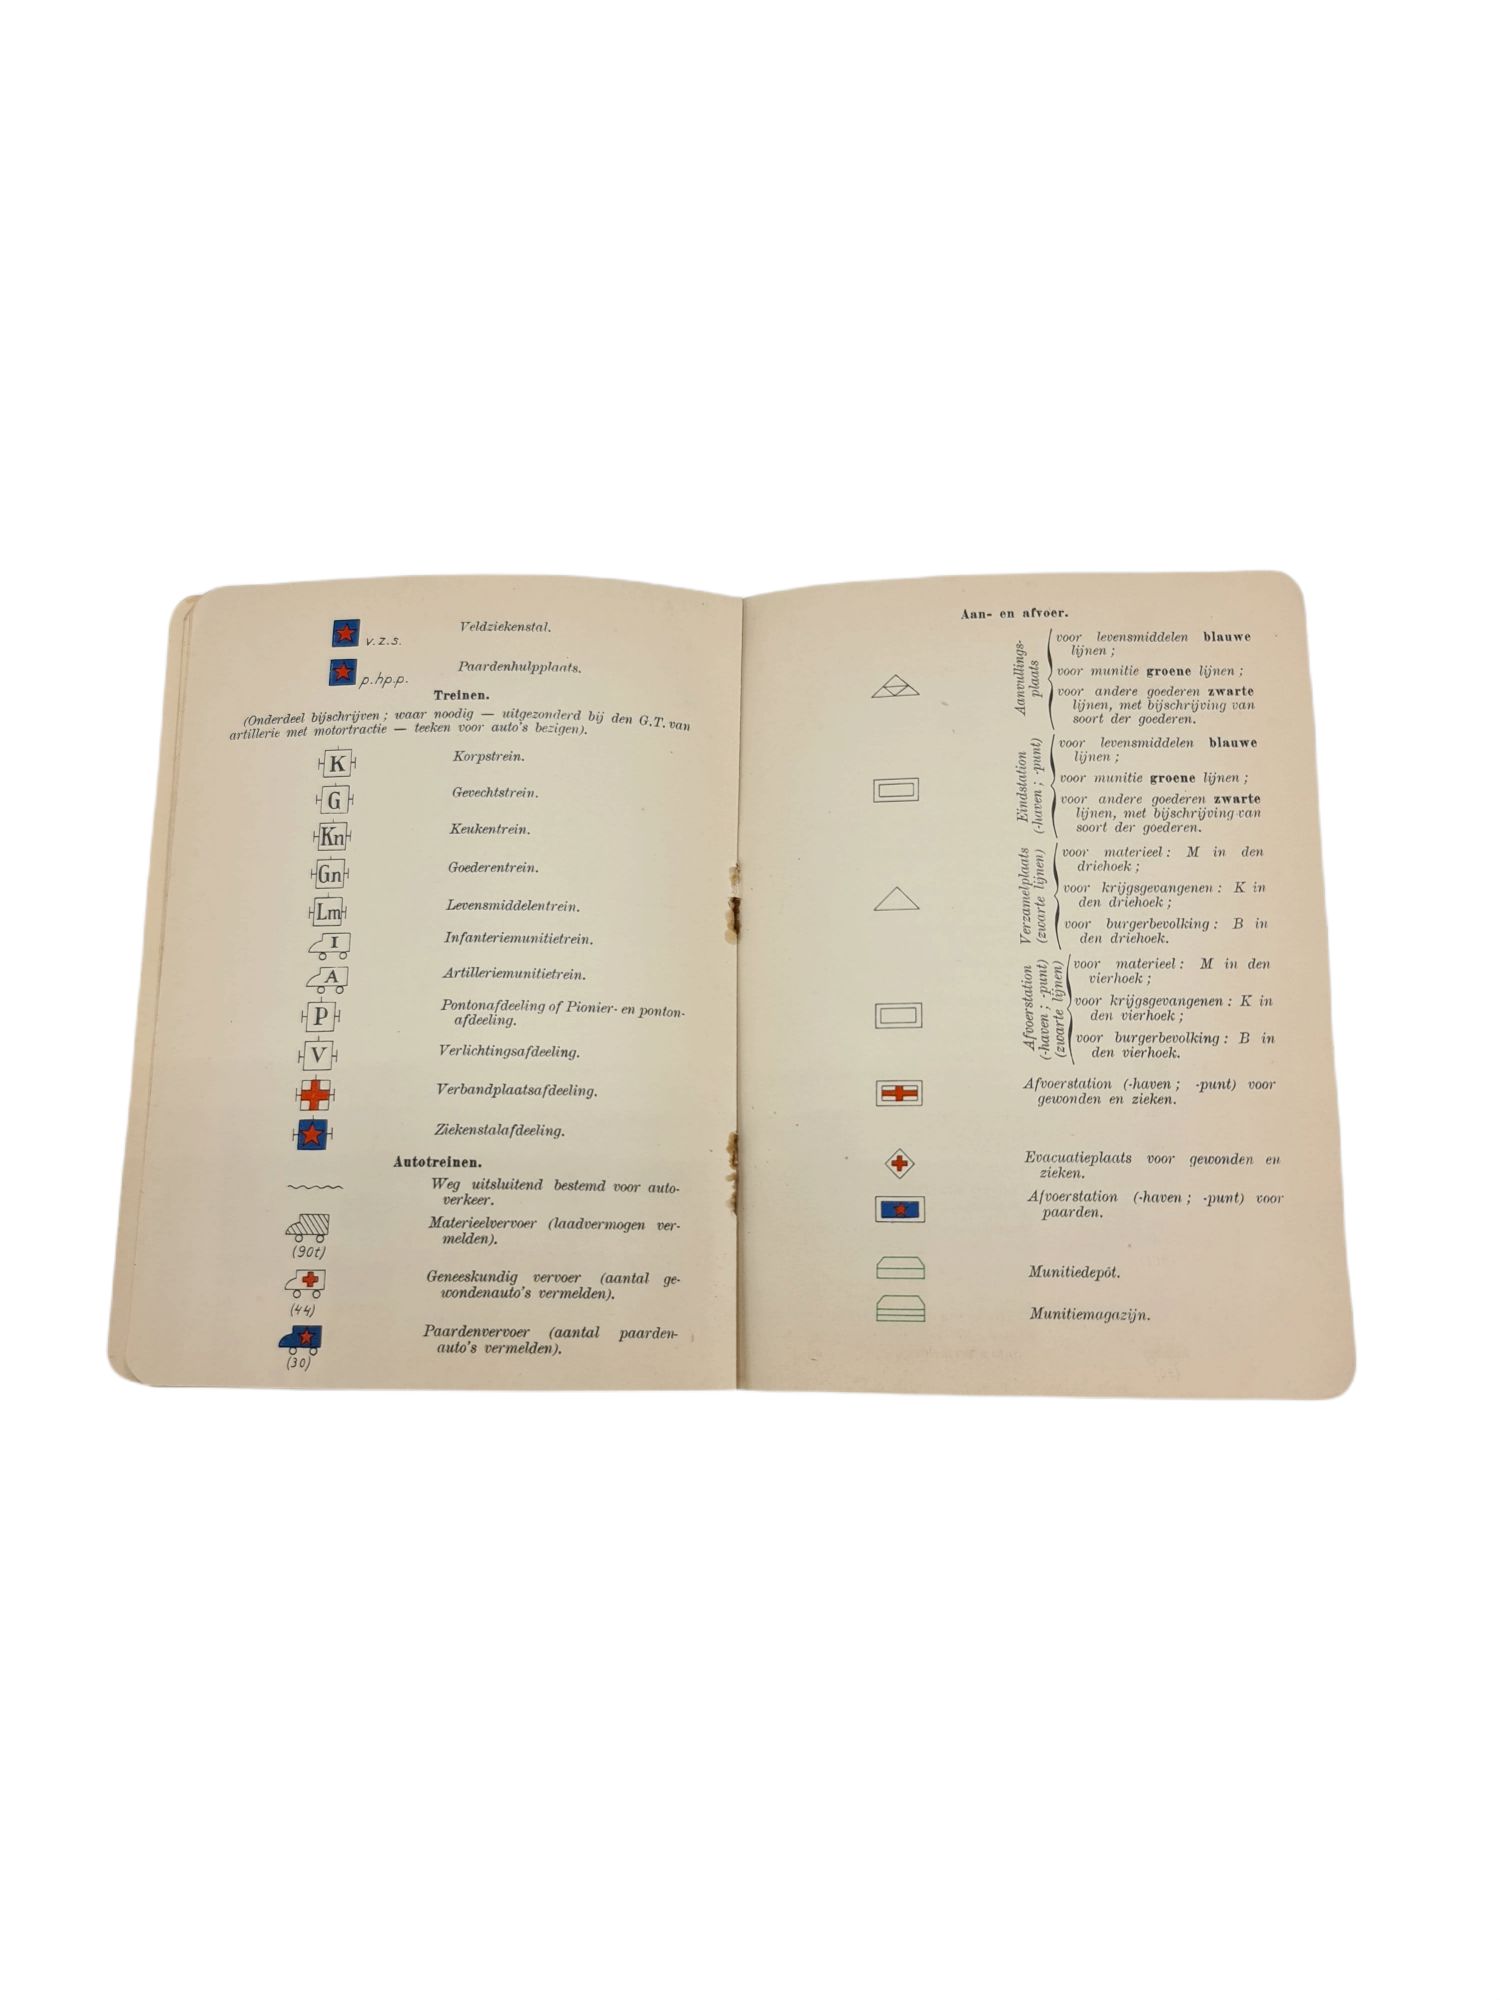 v.z.s. Veldziekenstal.
p.hp.p. Paardenhulpplaats.
Treinen.
(Onderdeel bijschrijven ; waar noodig — uitgezonderd bij den G.T. van
artillerie met motortractie — teeken voor auto's bezigen).
K Korpstrein.
G Gevechtstrein.
Kn Keukentrein.
Gn Goederentrein.
Lm Levensmiddelentrein.
I Infanteriemunitietrein.
A Artilleriemunitietrein.
P Pontonafdeeling of Pionier- en ponton-
afdeeling.
V Verlichtingsafdeeling.
Verbandplaatsafdeeling.
Ziekenstalafdeeling.
Autotreinen.
Weg uitsluitend bestemd voor auto-
verkeer.
Materieelvervoer (laadvermogen ver-
(90t) melden).
Geneeskundig vervoer (aantal ge-
(44) wondenauto's vermelden).
Paardenvervoer (aantal paarden-
(30) auto's vermelden).
Aan- en afvoer.
Aanvullings-
plaats
voor levensmiddelen blauwe
lijnen ;
voor munitie groene lijnen ;
voor andere goederen zwarte
lijnen, met bijschrijving van
soort der goederen.
Eindstation
(-haven ; -punt)
voor levensmiddelen blauwe
lijnen ;
voor munitie groene lijnen ;
voor andere goederen zwarte
lijnen, met bijschrijving van
soort der goederen.
Verzamelplaats
(zwarte lijnen)
voor materieel : M in den
driehoek ;
voor krijgsgevangenen : K in
den driehoek ;
voor burgerbevolking : B in
den driehoek.
Afvoerstation
(-haven ; -punt)
(zwarte lijnen)
voor materieel : M in den
vierhoek ;
voor krijgsgevangenen : K in
den vierhoek ;
voor burgerbevolking : B in
den vierhoek.
Afvoerstation (-haven ; -punt) voor
gewonden en zieken.
Evacuatieplaats voor gewonden en
zieken.
Afvoerstation (-haven ; -punt) voor
paarden.
Munitiedepôt.
Munitiemagazijn.